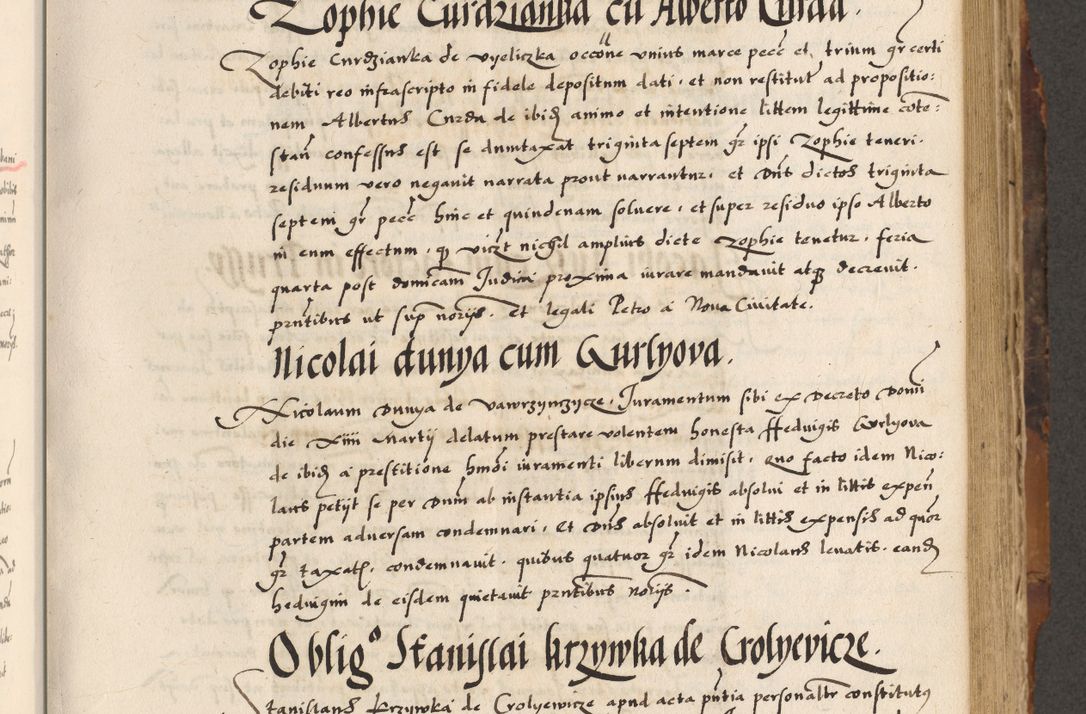 Zophie Curdzianka cu Alberto Curda.
Zophie Curdzianka de Vyeliczka occõne unius marce pecẽ et trium gr certi
debiti reo infrascripto in fidele depositum dati, et non restitut ad propositio:
nem Albertus Curda de ibidẽ animo et intentione littem legittime cõte:
stañ confessus est se dumtaxat triginta septem gr ipsi Zophie teneri.
residuum vero negavit narrata prout narrantur, et Dñs dictos triginta
septem gr pecẽ hinc et quindenam solvere, et super residuo ipso Alberto
in eum effectum, q vizt nichil amplius dicte Zophie tenetur, feria
quarta post domicam Judica proxima iurare mandavit atq decrevit.
prñtibus ut sup norijs. Et legali Petro a Nova Civitate.
Nicolai dunya cum Gurlyova.
Nicolaum Dunya de Vawrzynczycze, Juramentum sibi ex Decreto Domi
die Xiiii Martij delatum prestare volentem honesta Hedvigis Gurlyova
de ibidẽ a prestitione hmõi iuramenti liberum dimisit. Quo facto idem Nico:
laus petijt se per Dnm ab instantia ipsius Hedvigis absolvi et in littis expeñ
partem adversam condemnari, Et Dñs absolvit et in littis expensis ad quor
gr taxatẽ, condemnavit, quibus quatuor gr idem Nicolaus levatis, eandẽ
hedvigim de eisdem quietavit prñtibus norijs.
Obligº Stanislai krzywka de Crolyevicze.
Stanislaus Krzywka de Crolyewicze apud acta pñtia personaltr constitutus